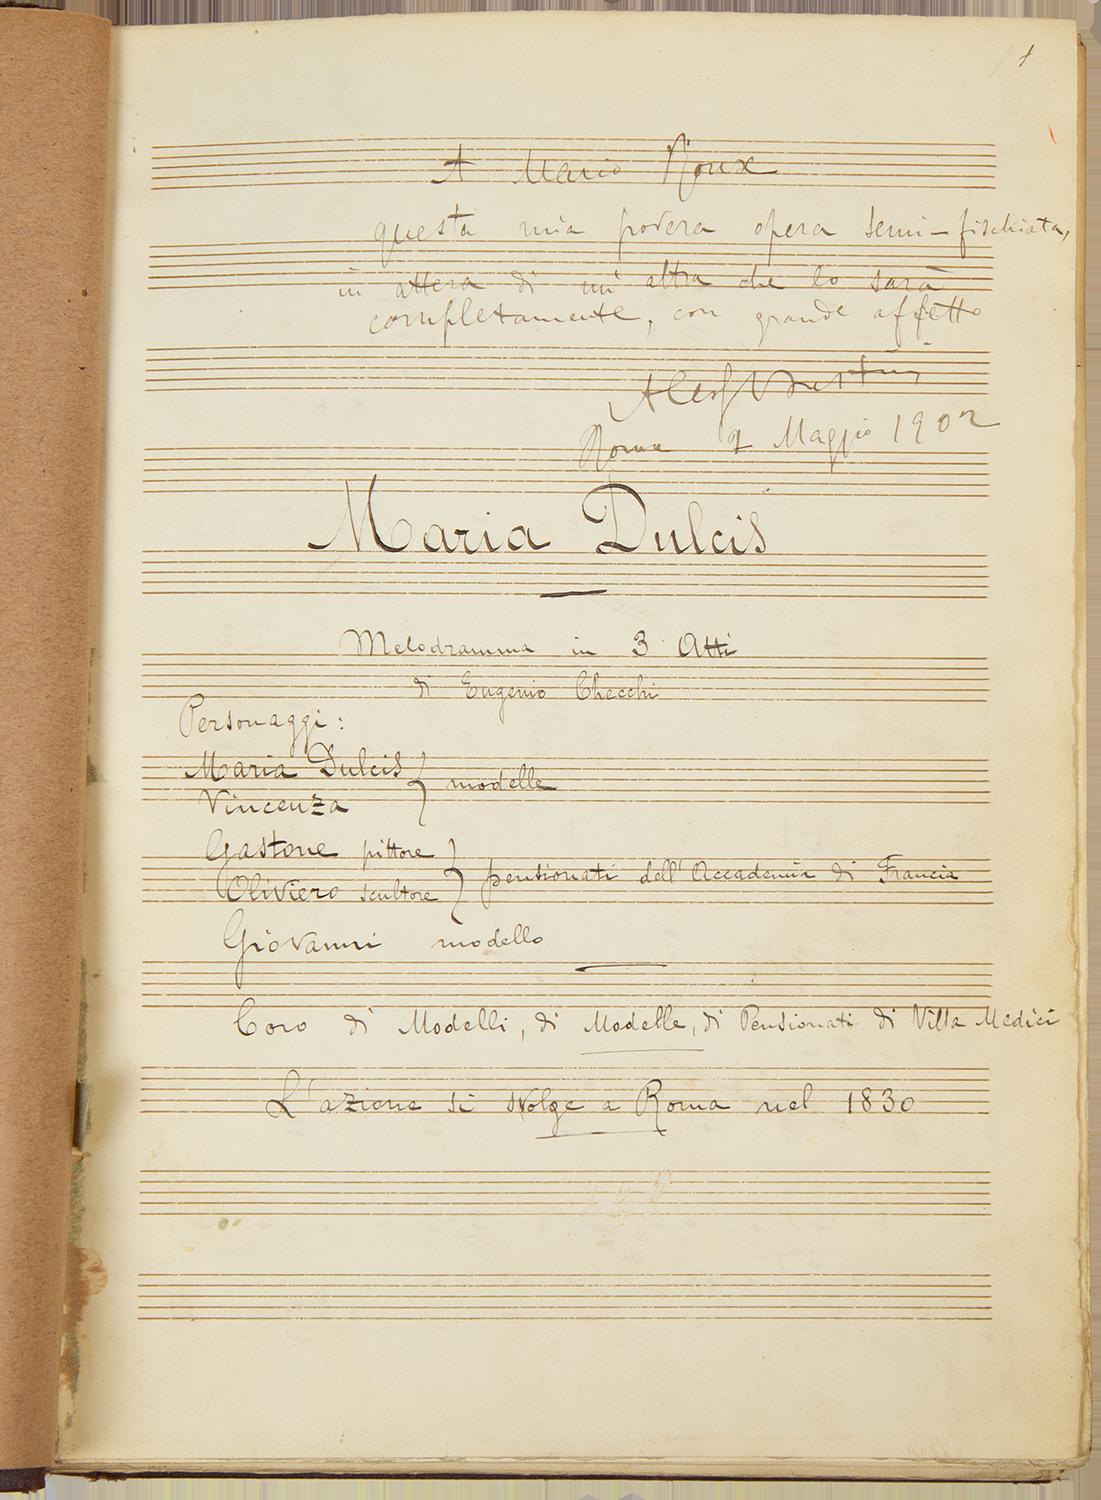 1
A Mario Roux
questa mia povera opera semi-fischiata,
in attesa di un'altra che lo sarà
completamente, con grande affetto
Roma 9 Maggio 1902
Maria Dulcis
Melodramma in 3 Atti
di Eugenio Checchi
Personaggi:
Maria Dulcis } modelle
Vincenza
Gastone pittore } pensionati dell'Accademia di Francia
Oliviero scultore
Giovanni modello
Coro di Modelli, di Modelle, di Pensionati di Villa Medici
L'azione si svolge a Roma nel 1830